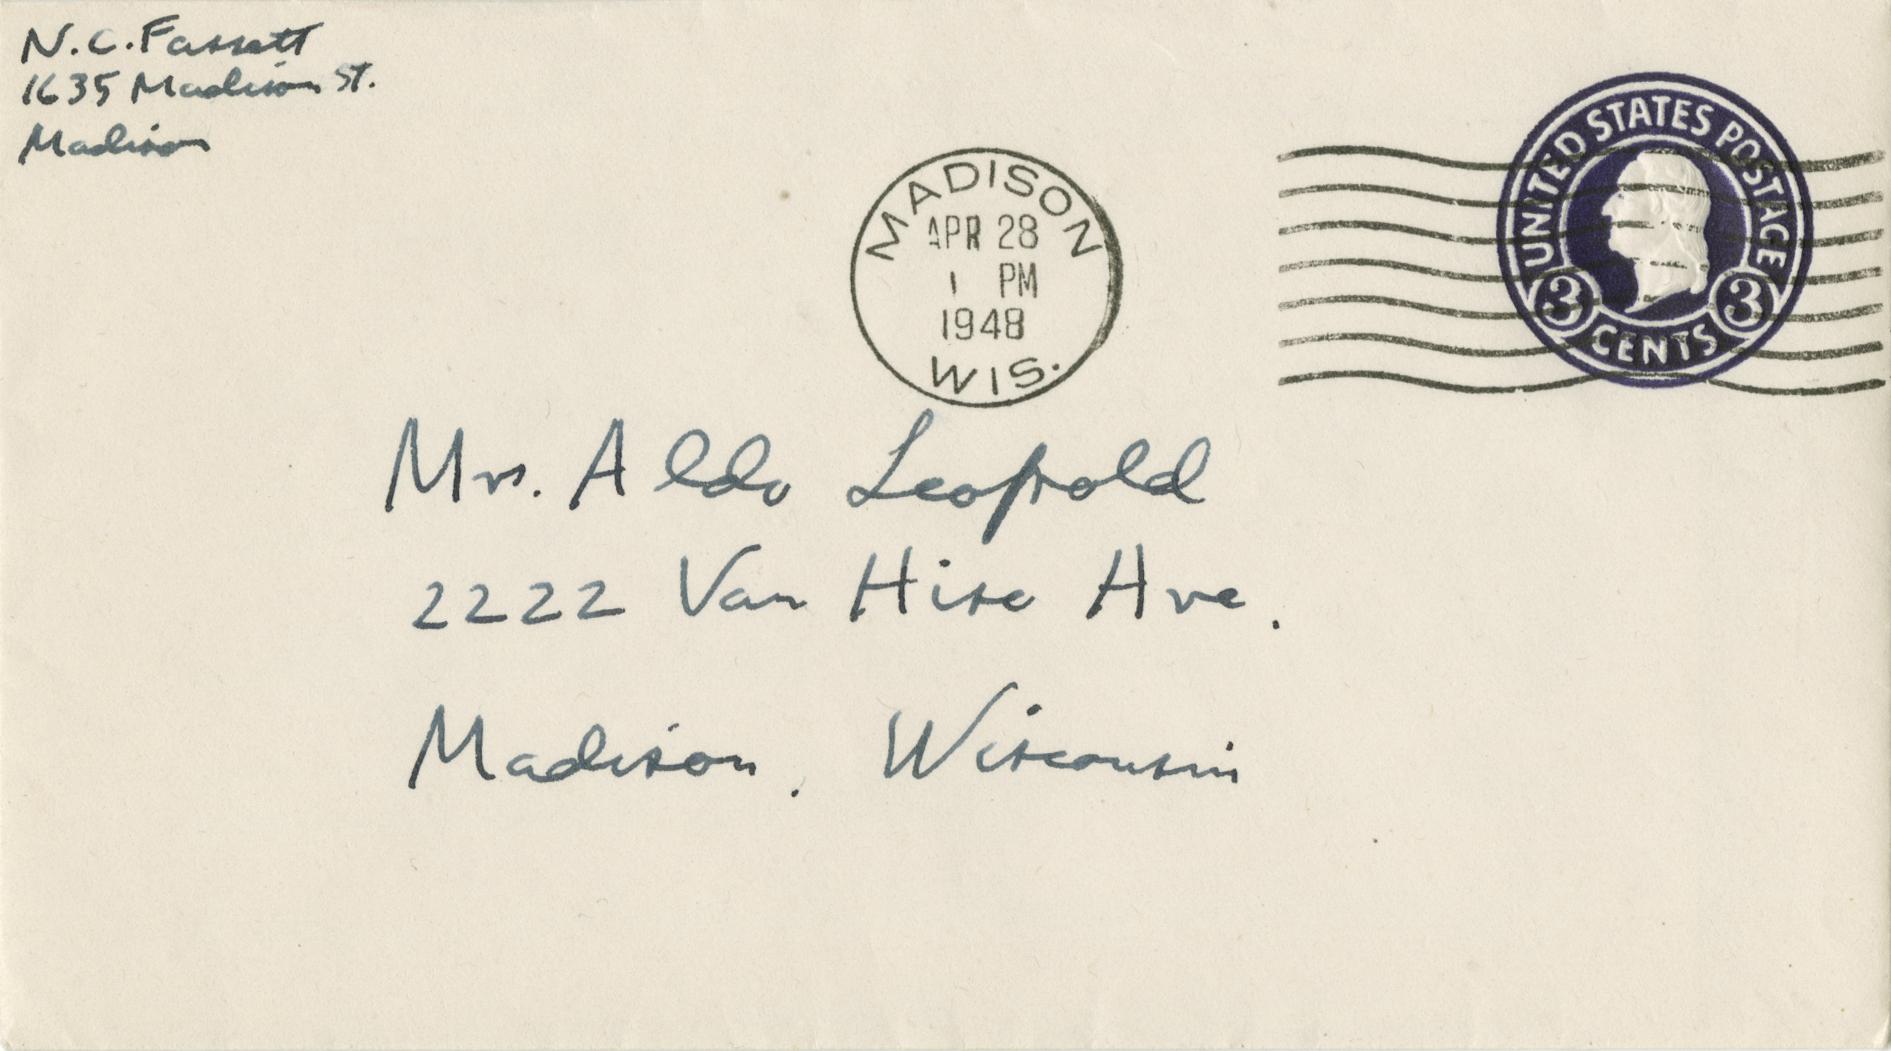 N.C. Fassett
1635 Madison St.
Madison
MADISON
APR 28
1 PM
1948
WIS.
UNITED STATES POSTAGE
3 3
CENTS
Mrs. Aldo Leopold
2222 Van Hise Ave.
Madison, Wisconsin